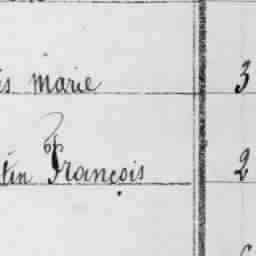 is Marie 3
tin François 2